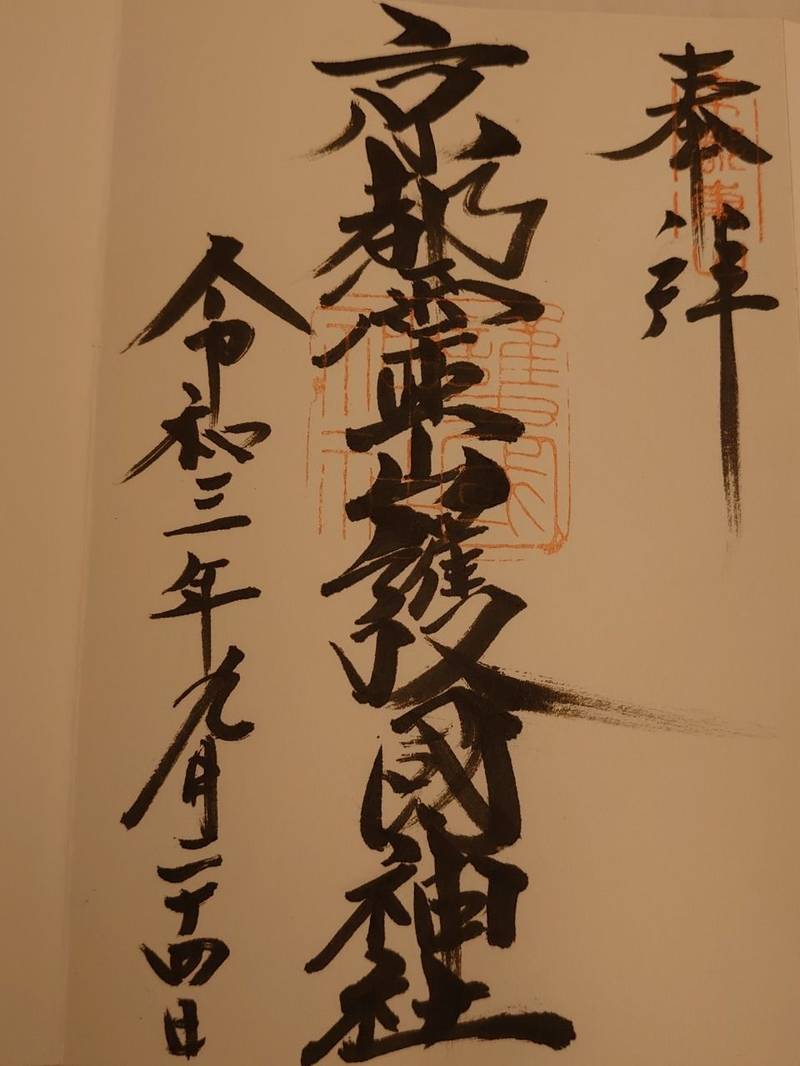 奉拝
京都霊山護國神社
令和三年九月二十四日